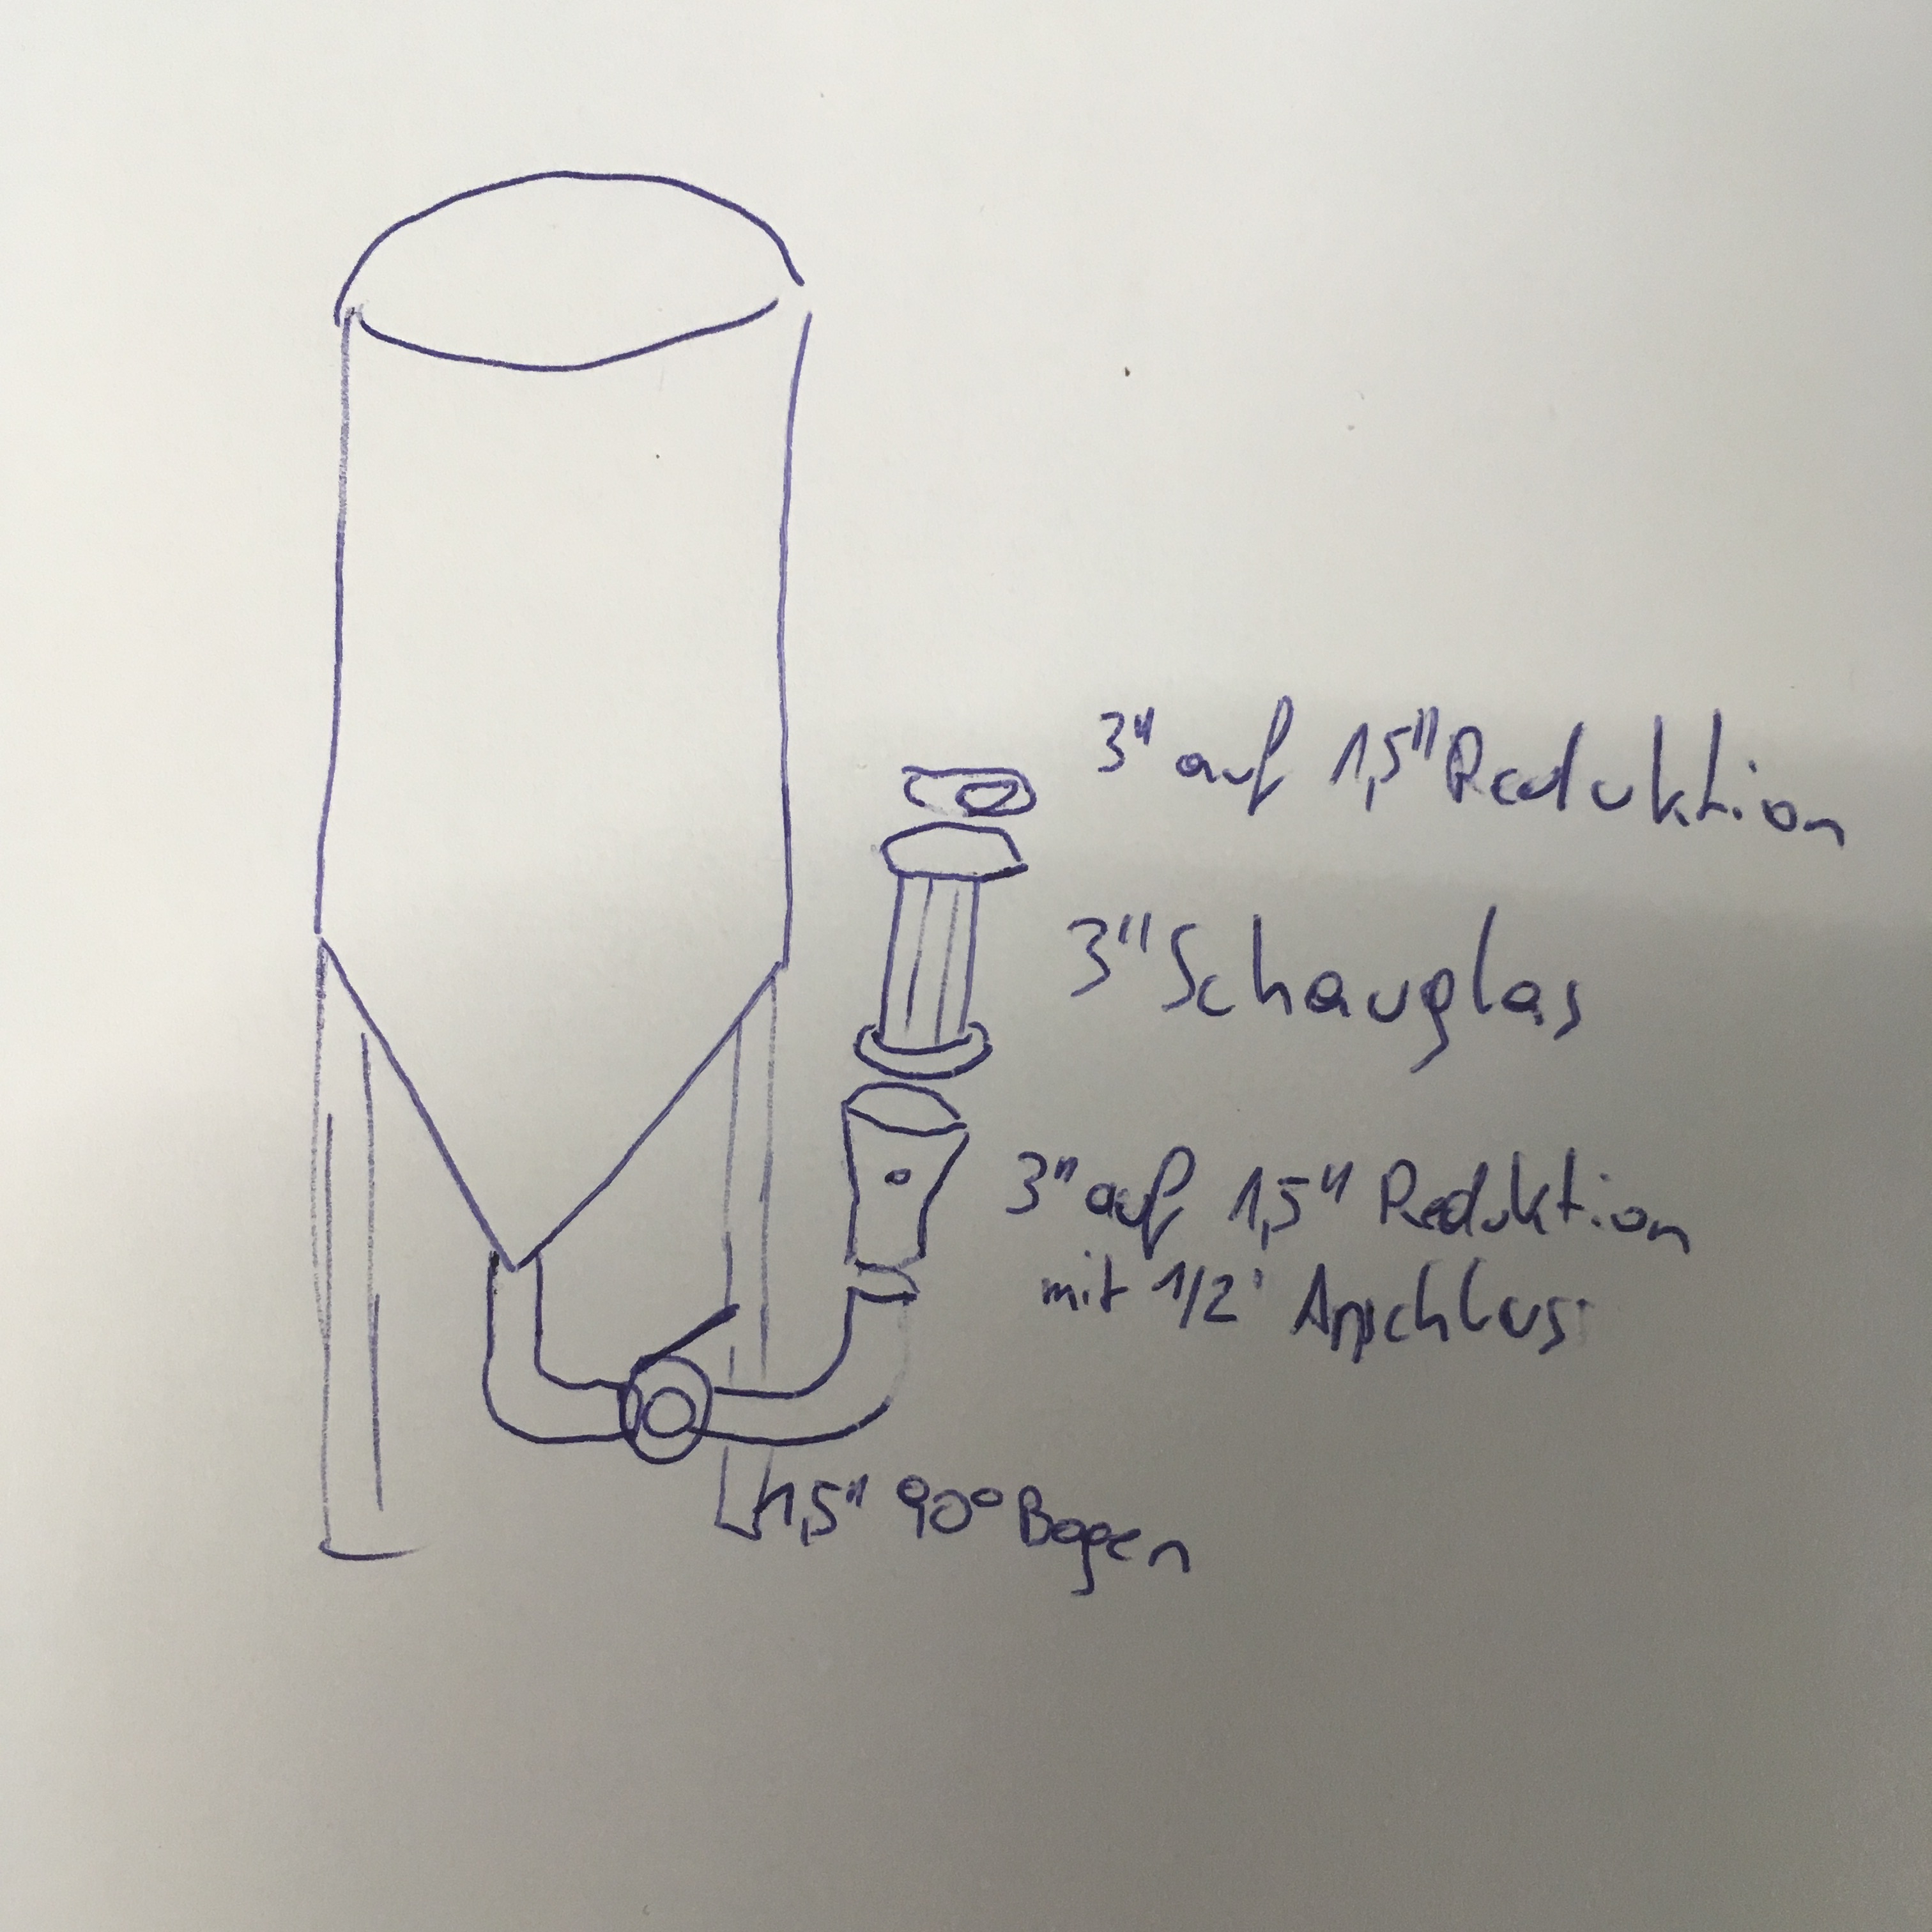 3" auf 1,5" Reduktion
3" Schauglas
3" auf 1,5" Reduktion
mit 1/2' Anschluss
1,5" 90° Bogen